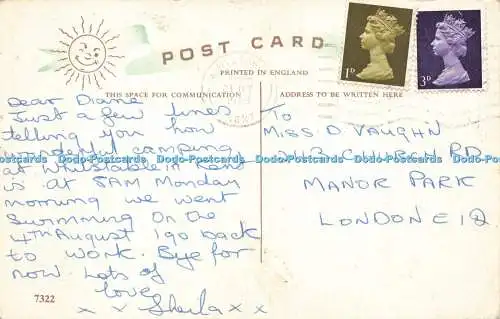 POST CARD
PRINTED IN ENGLAND
1D
3D
THIS SPACE FOR COMMUNICATION
ADDRESS TO BE WRITTEN HERE
Dear Diane
Just a few lines
telling you how
wonderful camping
at Whitstable in Kent
is at 8AM Monday
morning we went
swimming On the
4TH August I go back
to work. Bye for
now. Lots of
love
x x Sheila x x
7322
To
MISS D VAUGHN
CHURCH RD
MANOR PARK
LONDON E12
Dodo-Postcards Dodo-Postcards Dodo-Postcards Dodo-Postcards Dodo-Postcards